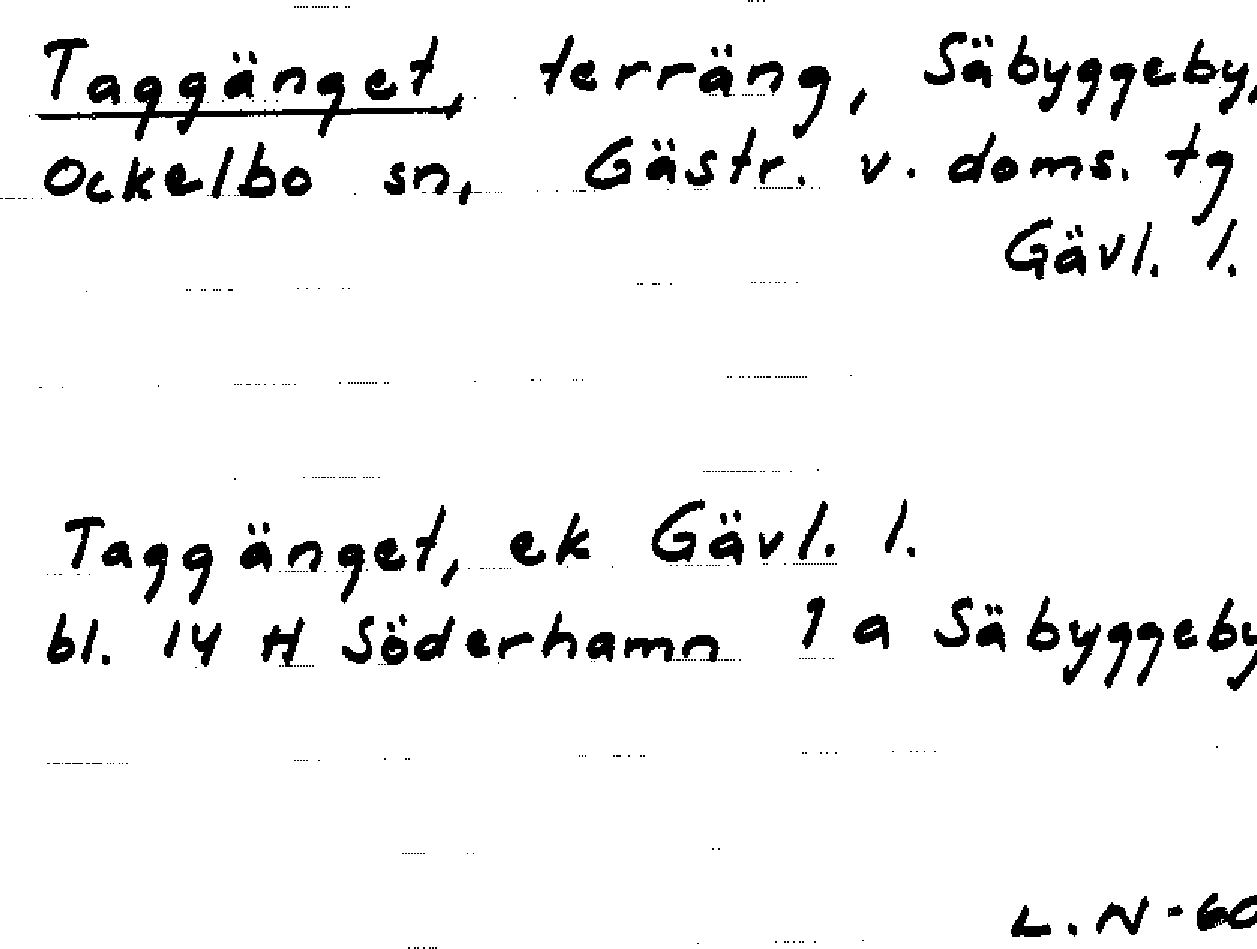 Taggänget, terräng, Säbyggeby,
Ockelbo sn, Gästr. v. doms. tg
Gävl. l.
Taggänget, ek Gävl. l.
bl. 14 H Söderhamn 1 a Säbyggeby
L. N-60